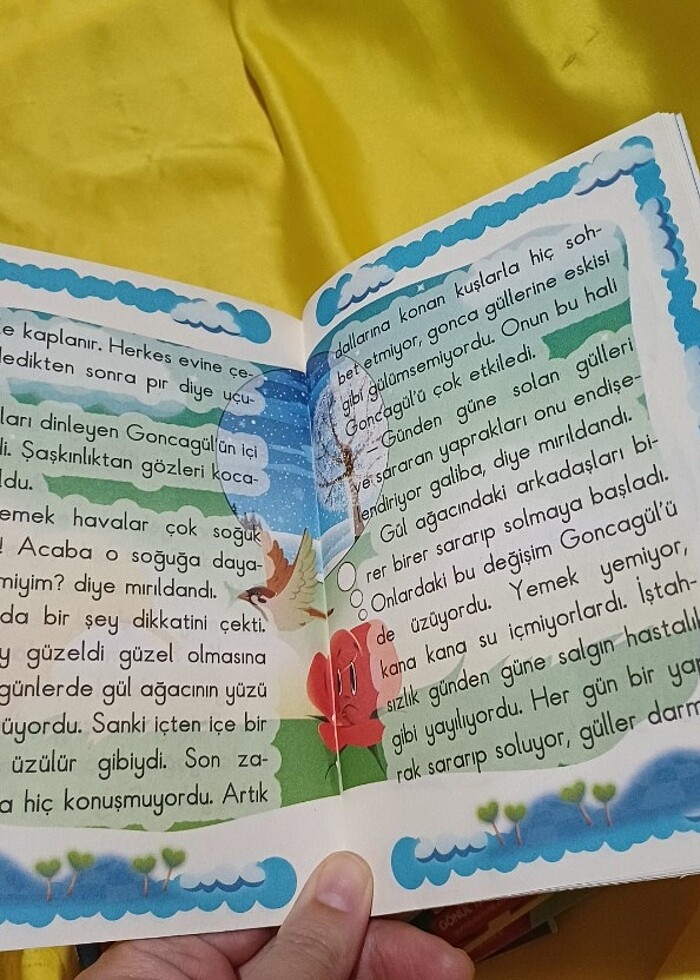 e kaplanır. Herkes evine çe-
ledikten sonra pır diye uçu-
ları dinleyen Goncagül'ün içi
di. Şaşkınlıktan gözleri koca-
ldu.
emek havalar çok soğuk
! Acaba o soğuğa daya-
miyim? diye mırıldandı.
da bir şey dikkatini çekti.
y güzeldi güzel olmasına
günlerde gül ağacının yüzü
üyordu. Sanki içten içe bir
üzülür gibiydi. Son za-
a hiç konuşmuyordu. Artık
dallarına konan kuşlarla hiç soh-
bet etmiyor, gonca güllerine eskisi
gibi gülümsemiyordu. Onun bu hali
Goncagül'ü çok etkiledi.
– Günden güne solan gülleri
e sararan yaprakları onu endişe-
endiriyor galiba, diye mırıldandı.
Gül ağacındaki arkadaşları bi-
rer birer sararıp solmaya başladı.
Onlardaki bu değişim Goncagül'ü
de üzüyordu. Yemek yemiyor,
kana kana su içmiyorlardı. İştah-
sızlık günden güne salgın hastalık
gibi yayılıyordu. Her gün bir ya
rak sararıp soluyor, güller darm